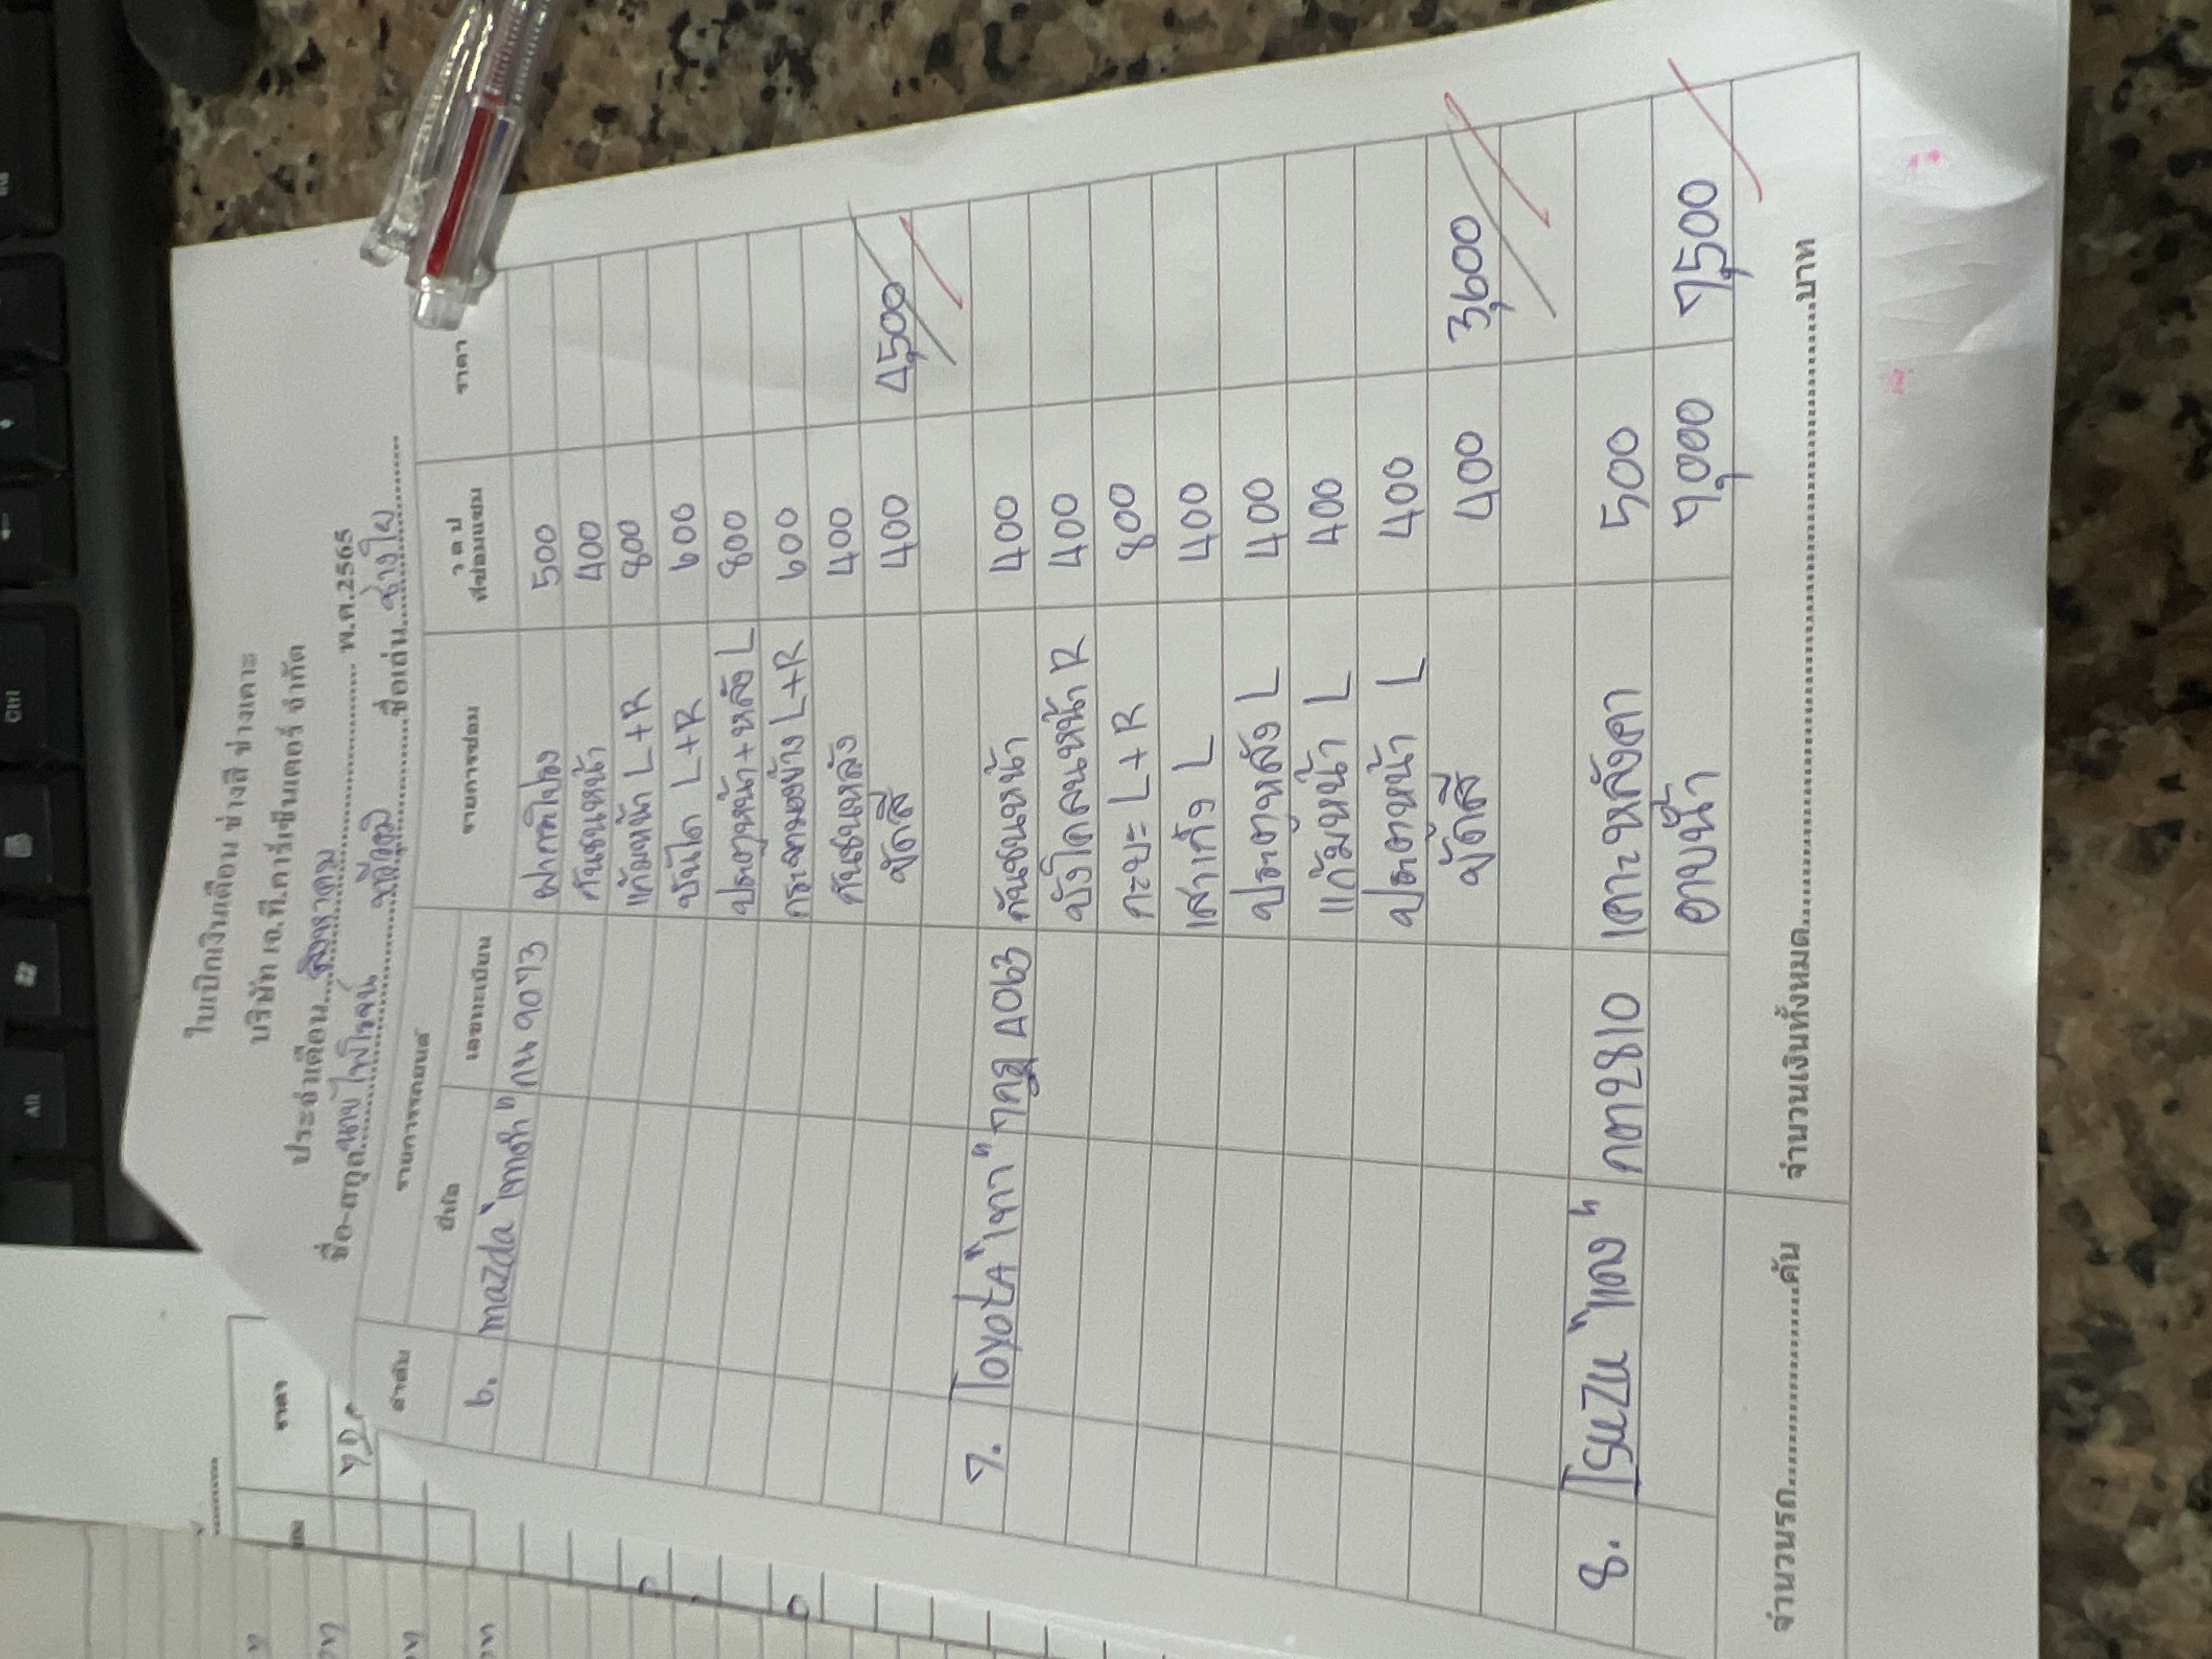 ใบเบิกเงินเดือน ช่างสี ช่างเคาะ
บริษัท เจ.ที.คาร์เซ็นเตอร์ จำกัด
ประจำเดือน สิงหาคม พ.ศ.2565
ชื่อ-สกุล นาย ไพโรจน์ ชื่อเล่น ช่างใย
ลำดับ รายการรถยนต์ รายการซ่อม ว ด ป ราคา
ยี่ห้อ เลขทะเบียน ที่ซ่อมแซม
6. mazda "เทาดำ" กน 9073 ฝากระโปรง 500
กันชนหน้า 400
แก้มหน้า L+R 800
บันได L+R 600
ประตูหน้า+หลัง L 800
กระจกมองข้าง L+R 600
กันชนหลัง 400
ขัดสี 400 4,500
7. Toyota "เทา" 4063 กันชนหน้า 400
บังโคลนหน้า R 400
กะบะ L+R 800
เสาเก๋ง L 400
ประตูหลัง L 400
แก้มหน้า L 400
ประตูหน้า L 400
ขัดสี 400 3,600
8. Isuzu "แดง" กต 2810 เคาะหลังคา 500
อาบน้ำ 7,000 7,500
จำนวนรถ..........คัน จำนวนเงินทั้งหมด..........บาท
ราคา